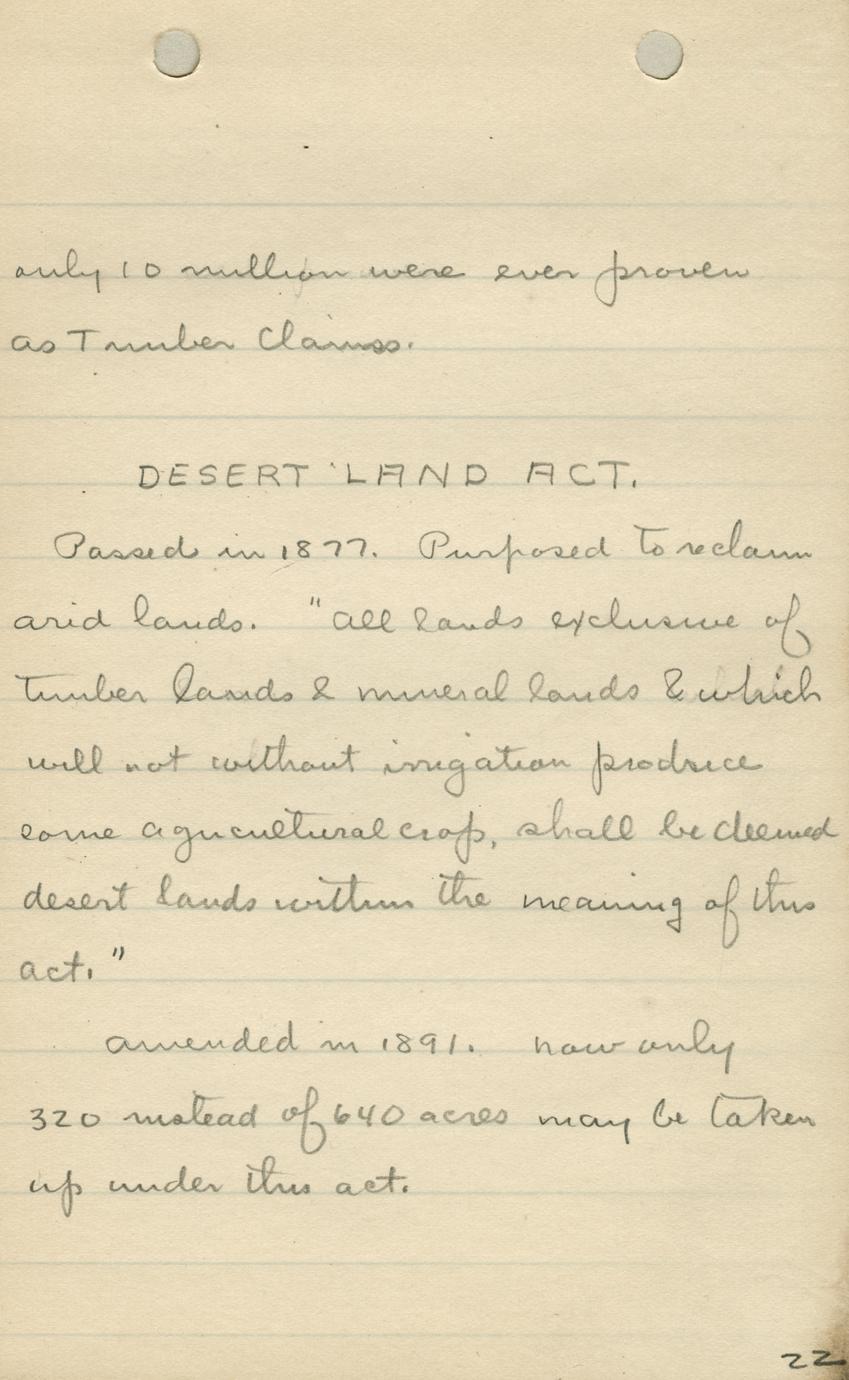 only 10 million were ever proven
as Timber Claims.
DESERT LAND ACT.
Passed in 1877. Purposed to reclaim
arid lands. "All lands exclusive of
timber lands & mineral lands & which
will not without irrigation produce
some agricultural crop, shall be deemed
desert lands within the meaning of this
act."
Amended in 1891. now only
320 instead of 640 acres may be taken
up under this act.
22